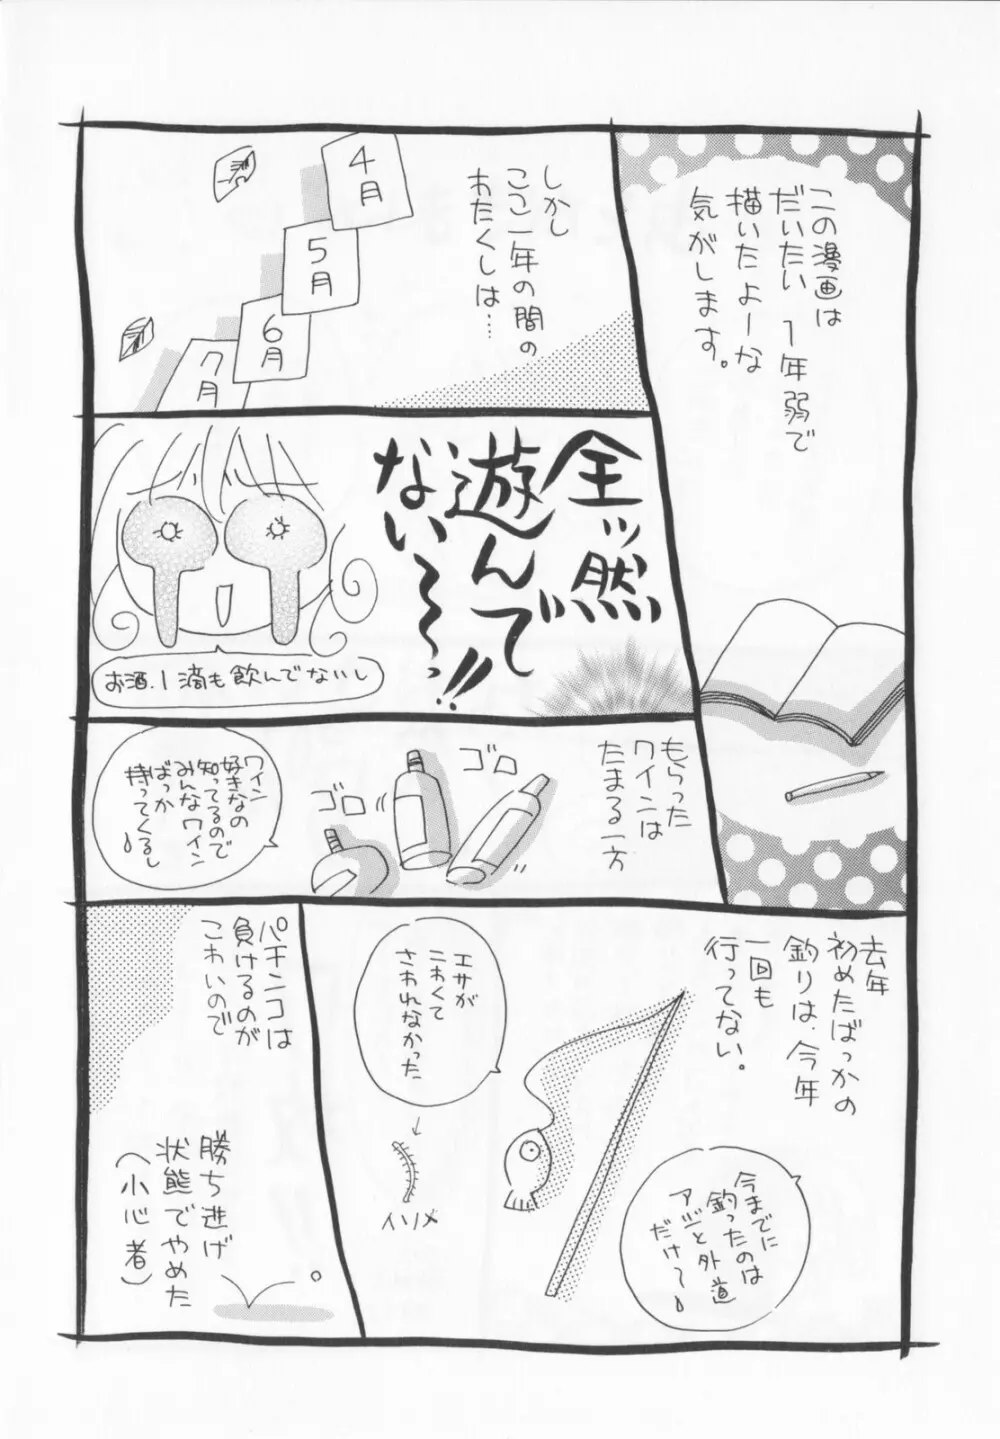 この漫画は
だいたい 1年弱で
描いたよーな
気がします。
しかし
ここ一年の間の
わたくしは…
4月
5月
6月
7月
全ッ然
遊んで
ない〜〜っ!!
お酒、1滴も飲んでないし
もらった
ワインは
たまる一方
ゴロ
ゴロ
ワイン
好きなの
知ってるので
みんなワイン
ばっか
持ってくるし
去年
初めたばっかの
釣りは、今年
一回も
行ってない。
今までに
釣ったのは
アジと外道
だけ〜
エサが
こわくて
さわれなかった
イソメ
パチンコは
負けるのが
こわいので
勝ち逃げ
状態でやめた
(小心者)